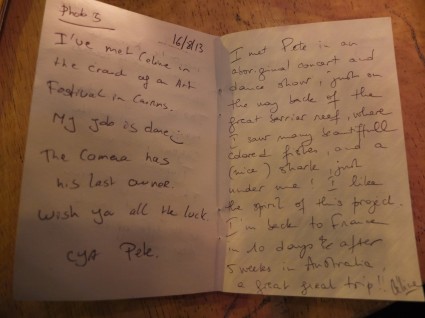 Photo 3
16/8/13
I've met Coline in
the crowd of an Art
Festival in Cairns.
My job is done;
The Camera has
his last owner.
Wish ya all the luck.
cya Pete.
I met Pete in an
aboriginal concert and
dance show, just on
the way back of the
great barrier reef, where
I saw many beautifull
colored fishes, and a
(nice) shark, just
under me! I like
the spirit of this project.
I'm back to France
in 10 days & after
5 weeks in Australia,
a great great trip!!